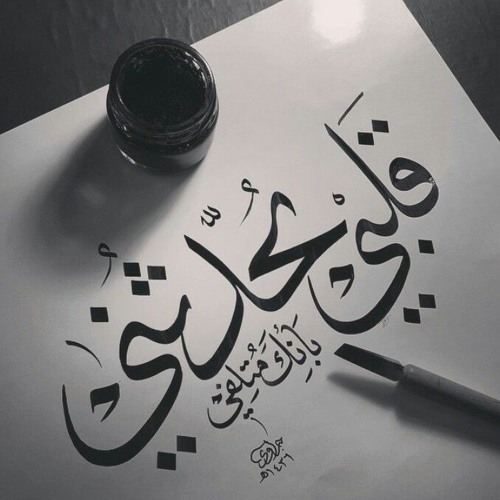 قلبي يُحدّثُني
بِأَنَّكَ مُتلِفي
١٤٣٦هـ